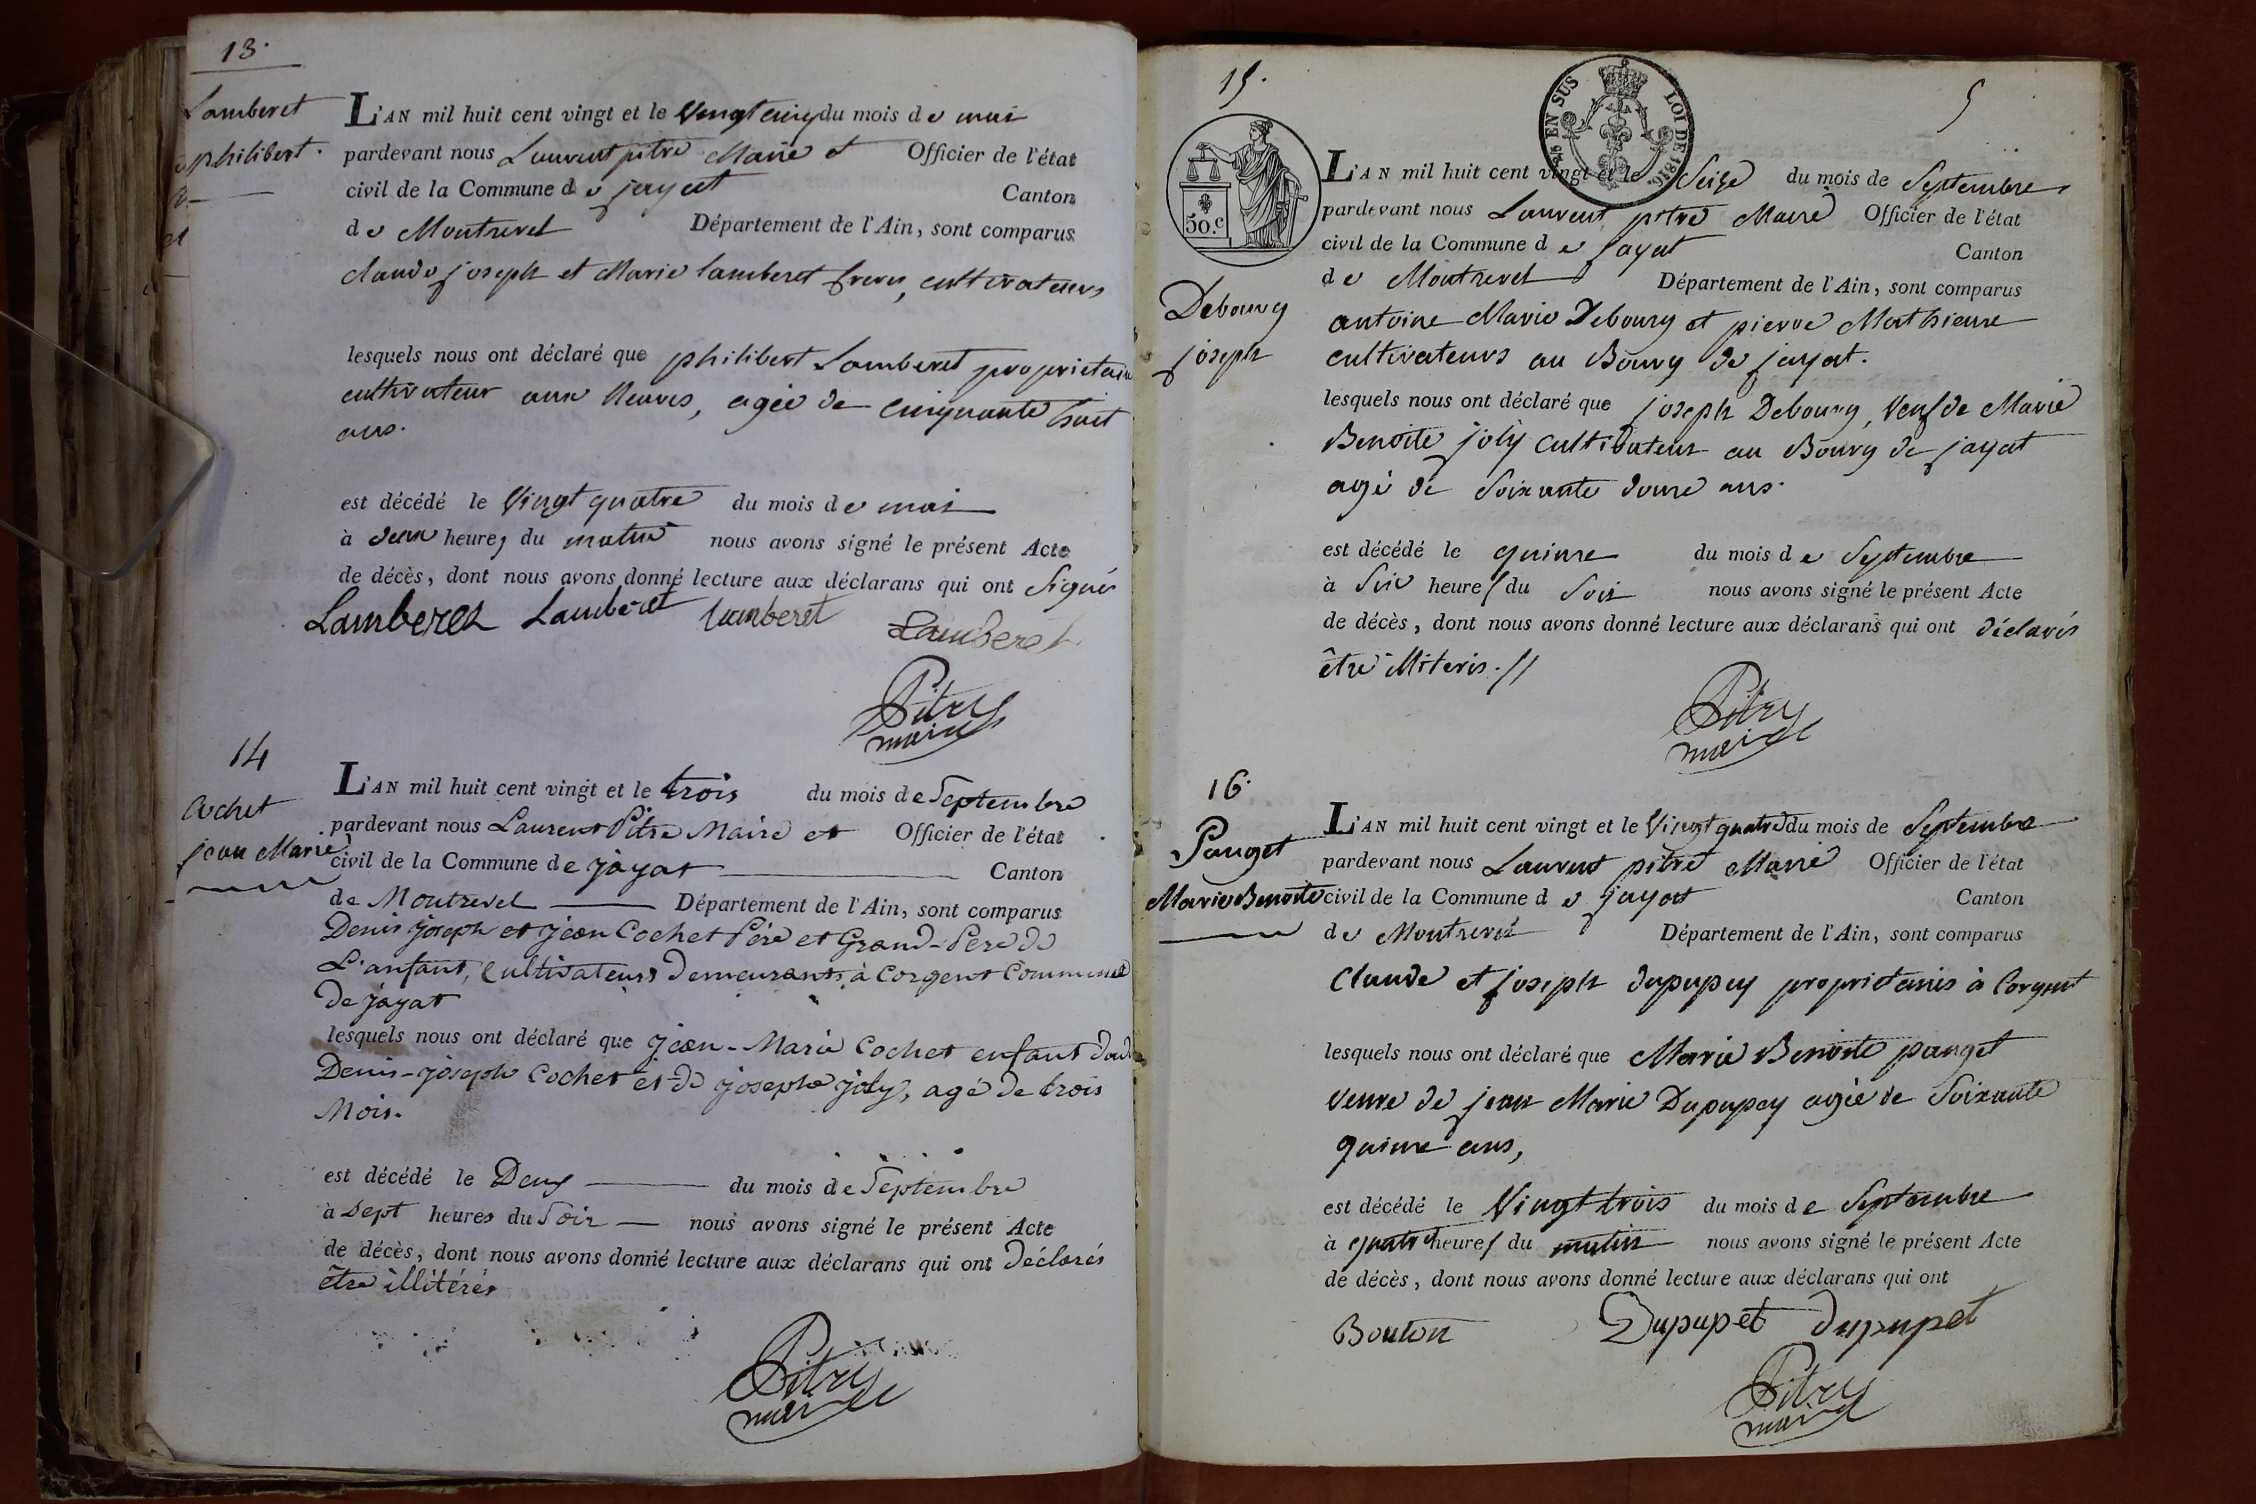 13.
Lamberet
philibert.
L'AN mil huit cent vingt et le Vingt cinq du mois de mai
pardevant nous Laurent pitre Maire et Officier de l'état
civil de la Commune de jayat Canton
de Montrevel Département de l'Ain, sont comparus
claude joseph et Marie lamberet freres, cultivateurs
lesquels nous ont déclaré que philibert Lamberet proprietaire
cultivateur aux, agée de cinquante huit
ans.
est décédé le Vingt quatre du mois de mai
à deux heures du matin nous avons signé le présent Acte
de décès, dont nous avons donné lecture aux déclarans qui ont signés
Lamberet Lamberet Lamberet Lamberet
Pitre
maire
14
Cochet
jean Marie
L'AN mil huit cent vingt et le trois du mois de Septembre
pardevant nous Laurent Pitre Maire et Officier de l'état
civil de la Commune de jayat Canton
de Montrevel Département de l'Ain, sont comparus
Denis joseph et jean Cochet Pére et Grand-Pere de
L'anfant, Cultivateurs Demeurants à Corgent Commune
de jayat
lesquels nous ont déclaré que jean-Marie Cochet enfant dudi
Denis-joseph Cochet et de josephe joly, agé de trois
Mois.
est décédé le Deux du mois de Septembre
à Sept heures du Soir nous avons signé le présent Acte
de décès, dont nous avons donné lecture aux déclarans qui ont Déclarés
être illitérés
Pitre
maire
15.
5
EN SUS
LOI DE 1816.
50.c
Debourg
joseph
L'AN mil huit cent vingt et le Seize du mois de Septembre
pardevant nous Laurent pitre Maire Officier de l'état
civil de la Commune de Jayat Canton
de Montrevel Département de l'Ain, sont comparus
antoine Marie Debourg et pierre Mathieure
cultivateurs au Bourg de jayat.
lesquels nous ont déclaré que joseph Debourg, Veuf de Marie
Benoite joly cultivateur au Bourg de jayat
agé de Soixante douze ans.
est décédé le quinze du mois de Septembre
à Six heures du Soir nous avons signé le présent Acte
de décès, dont nous avons donné lecture aux déclarans qui ont déclarés
être illiteris. //
Pitre
maire
16.
Panget
Marie Benoite
L'AN mil huit cent vingt et le Vingt quatre du mois de Septembre
pardevant nous Laurent pitre Maire Officier de l'état
civil de la Commune de jayat Canton
de Montrevel Département de l'Ain, sont comparus
Claude et joseph dupupey proprietaires à Corgent
lesquels nous ont déclaré que Marie Benoite panget
veuve de jean Marie Dupupey agée de Soixante
quinze ans,
est décédé le Vingt trois du mois de Septembre
à quatre heures du matin nous avons signé le présent Acte
de décès, dont nous avons donné lecture aux déclarans qui ont
Bouton Dupupet dupupet
Pitre
maire